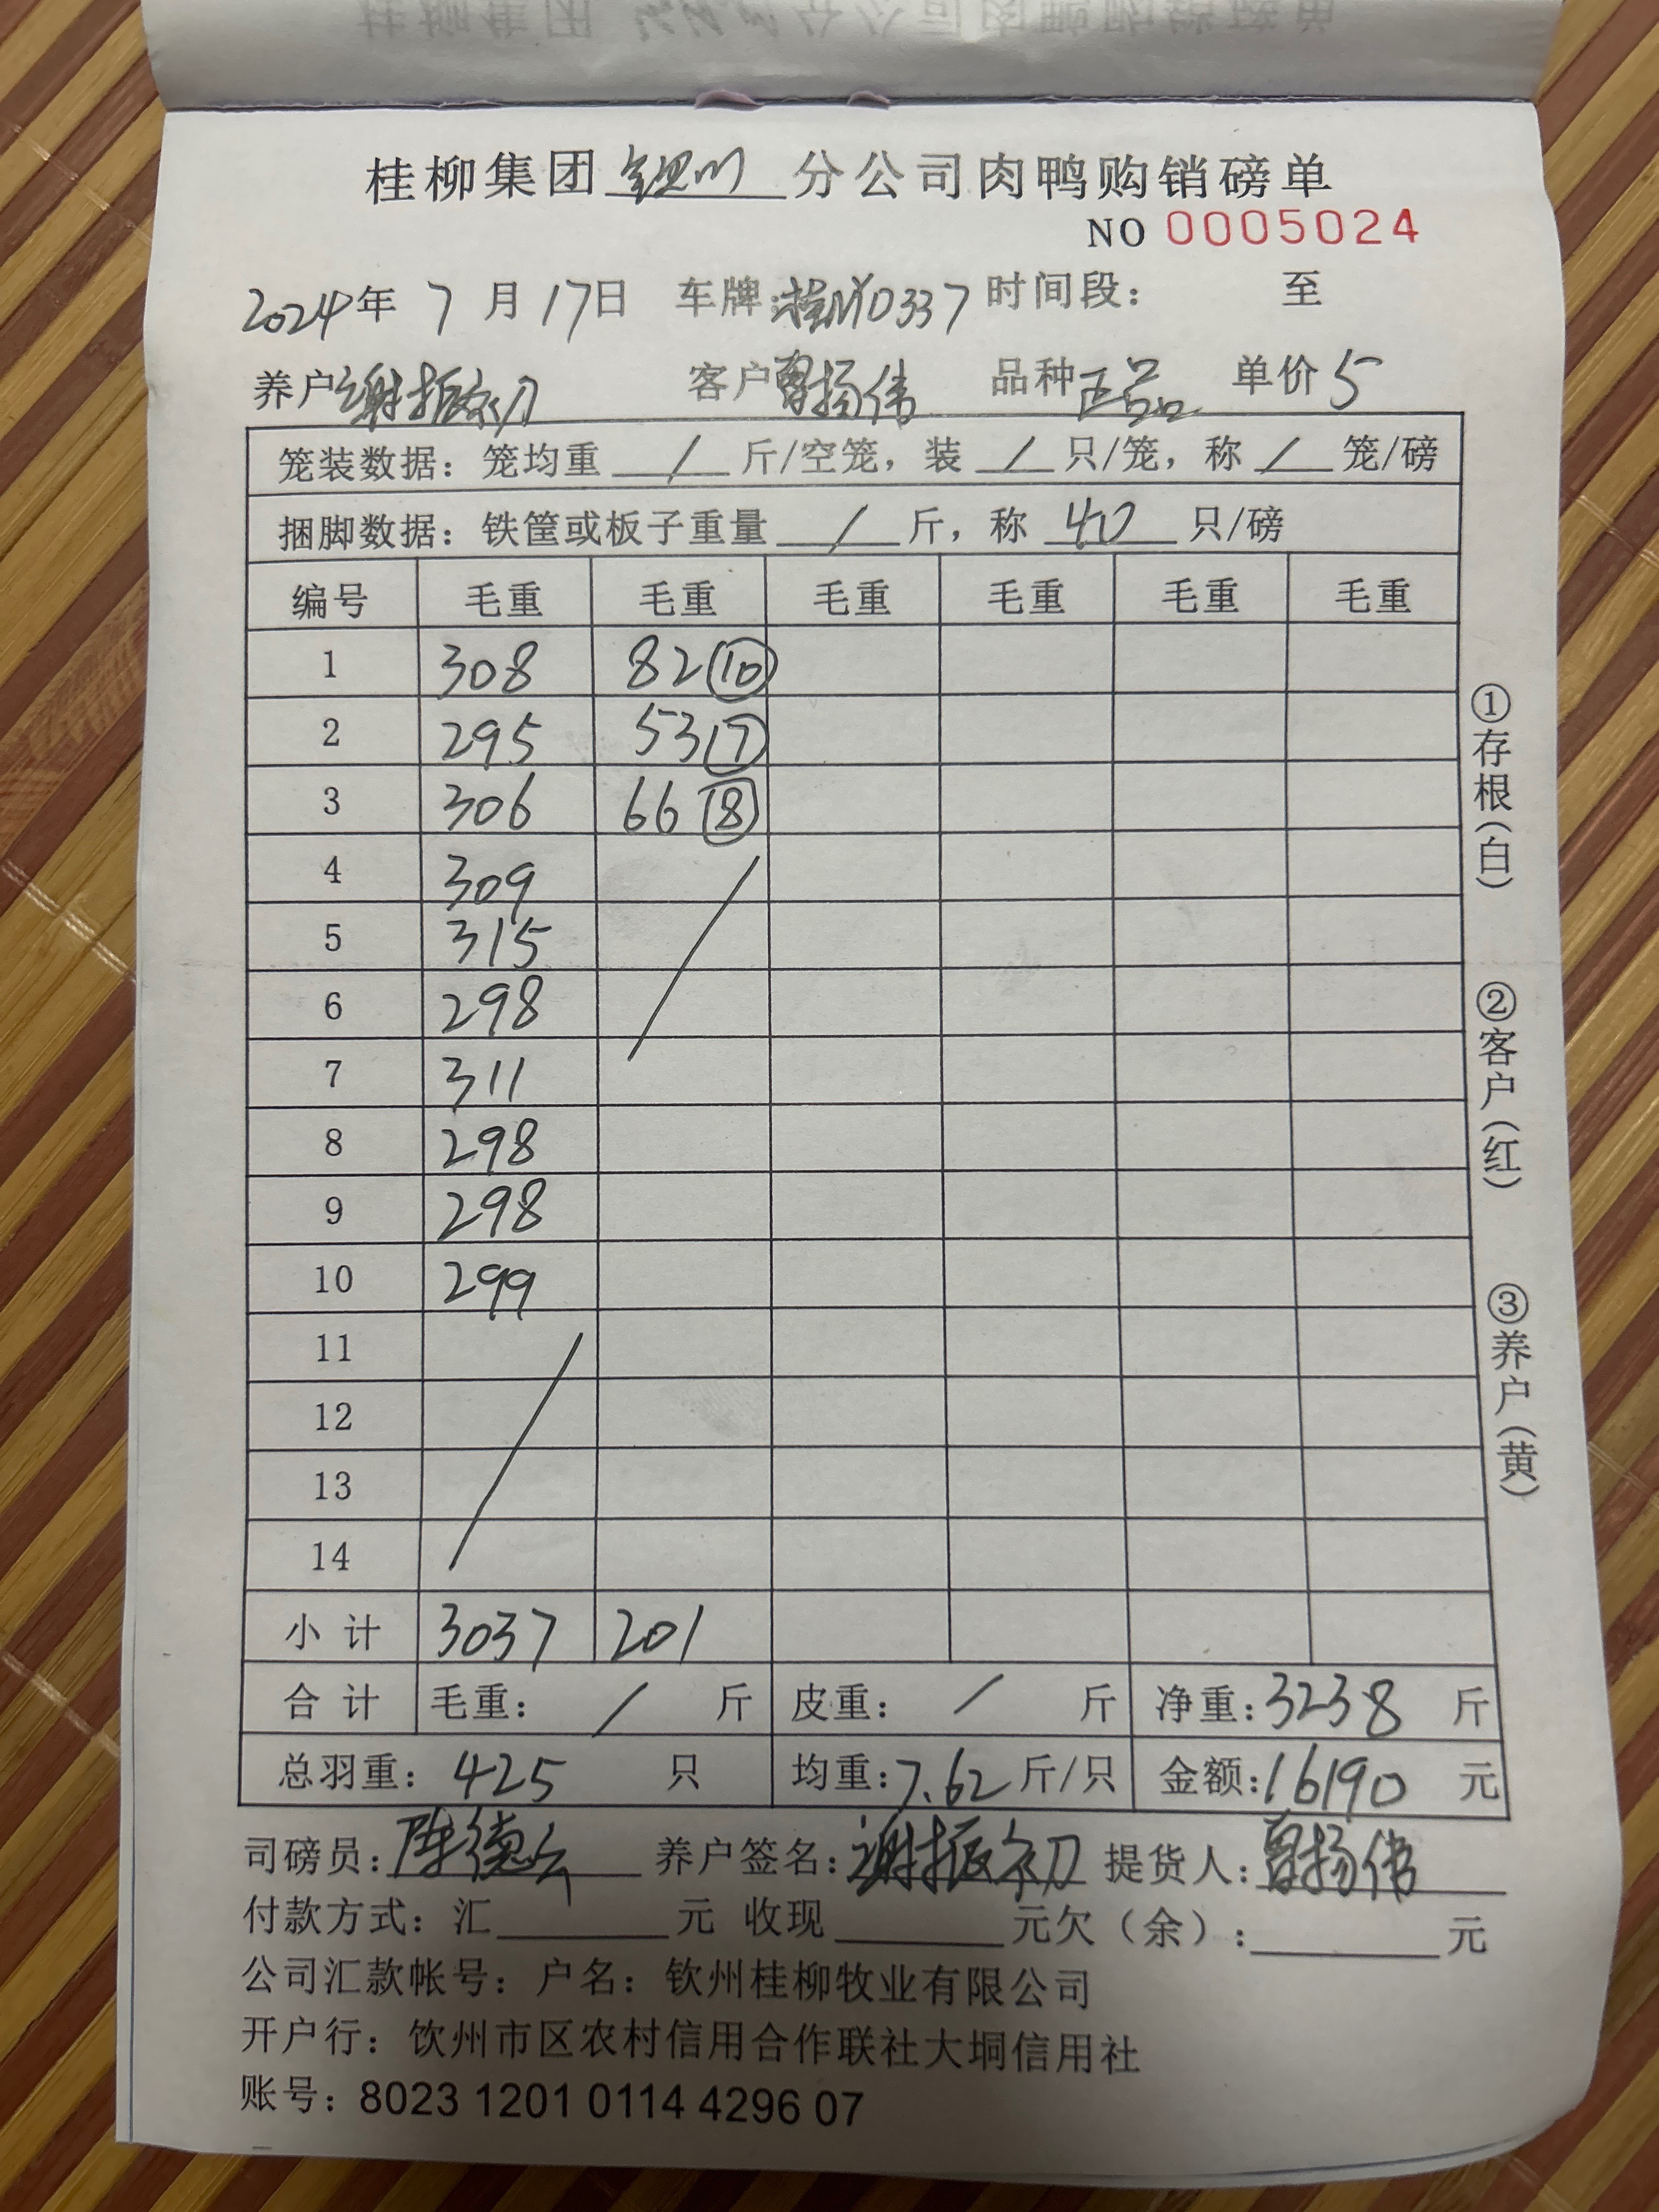 桂柳集团钦州分公司肉鸭购销磅单
NO 0005024
2024年 7 月 17日 车牌:桂N10337 时间段: 至
养户谢振初 客户曾扬伟 品种正品 单价5
笼装数据: 笼均重 / 斤/空笼, 装 / 只/笼, 称 / 笼/磅
捆脚数据: 铁筐或板子重量 / 斤, 称 40 只/磅
编号 毛重 毛重 毛重 毛重 毛重 毛重
1 308 82⑩
2 295 53⑦
3 306 66⑧
4 309
5 315
6 298
7 311
8 298
9 298
10 299
11
12
13
14
小计 3037 201
合计 毛重: / 斤 皮重: / 斤 净重:3238 斤
总羽重: 425 只 均重:7.62斤/只 金额:16190 元
司磅员:陈德云 养户签名:谢振初 提货人:曾扬伟
付款方式: 汇 元 收现 元欠(余): 元
公司汇款帐号: 户名: 钦州桂柳牧业有限公司
开户行: 饮州市区农村信用合作联社大垌信用社
账号: 8023 1201 0114 4296 07
①存根(白)
②客户(红)
③养户(黄)